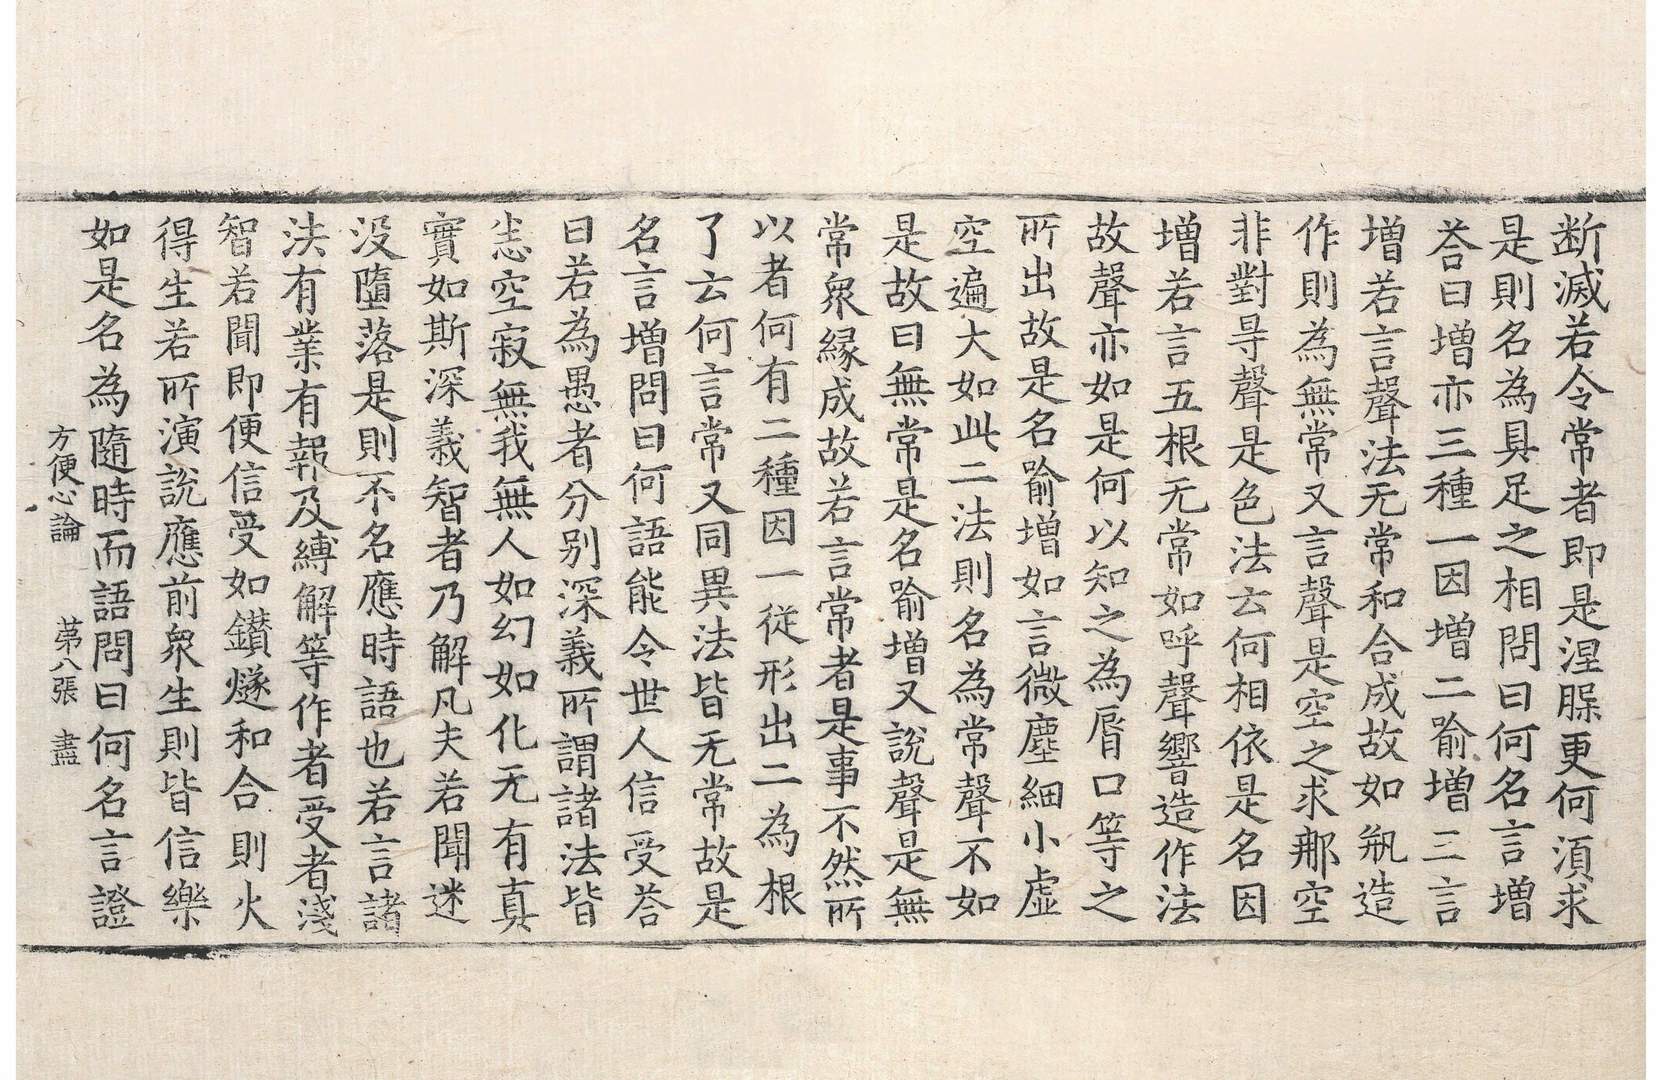 断滅若令常者即是涅槃更何湏求
是則名為具足之相問曰何名言増
荅曰増亦三種一因増二喻増三言
増若言聲法无常和合成故如瓶造
作則為無常又言聲是空之求那空
非對㝵聲是色法云何相依是名因
増若言五根无常如呼聲響造作法
故聲亦如是何以知之為脣口等之
所出故是名喻増如言微塵細小虛
空遍大如此二法則名為常聲不如
是故曰無常是名喻増又說聲是無
常衆縁成故若言常者是事不然所
以者何有二種因一從形出二為根
了云何言常又同異法皆无常故是
名言増問曰何語能令世人信受荅
曰若為愚者分别深義所謂諸法皆
悉空寂無我無人如幻如化无有真
實如斯深義智者乃解凡夫若聞迷
没墮落是則不名應時語也若言諸
法有業有報及縛解等作者受者淺
智若聞即便信受如鑚燧和合則火
得生若所演說應前衆生則皆信樂
如是名為隨時而語問曰何名言證
方便心論　第八張　盡